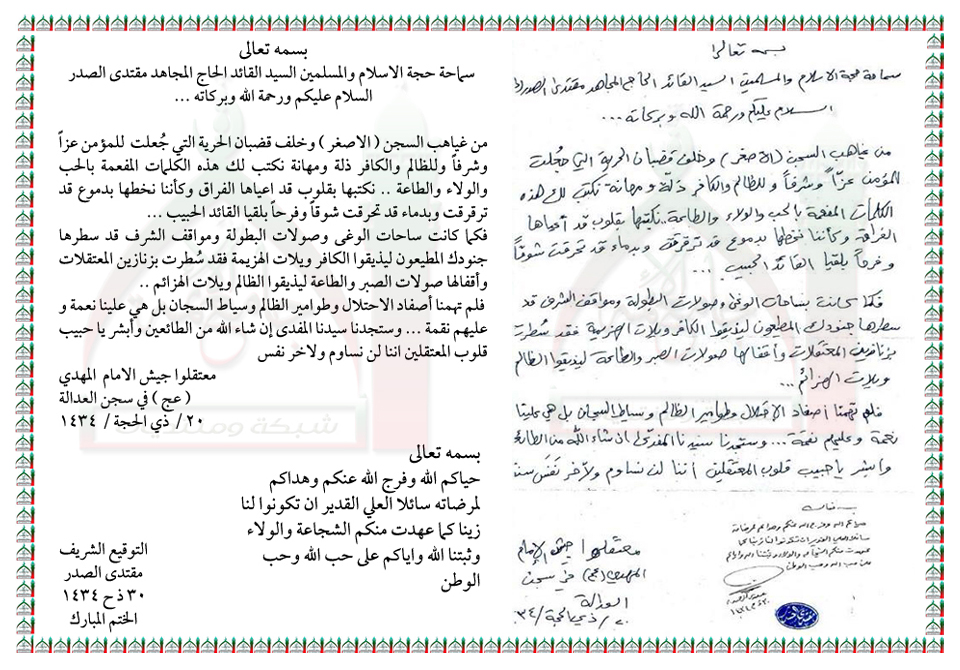 بسمه تعالى
سماحة حجة الاسلام والمسلمين السيد القائد الحاج المجاهد مقتدى الصدر
السلام عليكم ورحمة الله وبركاته ...
من غياهب السجن ( الاصغر ) وخلف قضبان الحرية التي جُعلت للمؤمن عزاً
وشرفاً وللظالم والكافر ذلة ومهانة نكتب لك هذه الكلمات المفعمة بالحب
والولاء والطاعة .. نكتبها بقلوب قد اعياها الفراق وكأننا نخطها بدموع قد
ترقرقت وبدماء قد تحرقت شوقاً وفرحاً بلقيا القائد الحبيب ...
فكما كانت ساحات الوغى وصولات البطولة ومواقف الشرف قد سطرها
جنودك المطيعون ليذيقوا الكافر ويلات الهزيمة فقد سُطرت بزنازين المعتقلات
وأقفالها صولات الصبر والطاعة ليذيقوا الظالم ويلات الهزائم ..
فلم تهمنا أصفاد الاحتلال وطوامير الظالم وسياط السجان بل هي علينا نعمة و
عليهم نقمة ... وستجدنا سيدنا المفدى إن شاء الله من الطائعين وأبشر يا حبيب
قلوب المعتقلين اننا لن نساوم ولاخر نفس
معتقلوا جيش الامام المهدي
( عج ) في سجن العدالة
٢٠ / ذي الحجة / ١٤٣٤
بسمه تعالى
حياكم الله وفرج الله عنكم وهداكم
لمرضاته سائلا العلي القدير ان تكونوا لنا
زينا كما عهدت منكم الشجاعة والولاء
وثبتنا الله واياكم على حب الله وحب
الوطن
التوقيع الشريف
مقتدى الصدر
٣٠ ذ ح ١٤٣٤
الختم المبارك
بسمه تعالى
سماحة حجة الاسلام والمسلمين السيد القائد الحاج المجاهد مقتدى الصدر
السلام عليكم ورحمة الله وبركاته ...
من غياهب السجن (الاصغر) وخلف قضبان الحرية التي جُعلت
للمؤمن عزاً وشرفاً وللظالم والكافر ذلة ومهانة نكتب لك هذه
الكلمات المفعمة بالحب والولاء والطاعة .. نكتبها بقلوب قد أعياها
الفراق وكأننا نخطها بدموع قد ترقرقت وبدماء قد تحرقت شوقاً
وفرحاً بلقيا القائد الحبيب ...
فكما كانت ساحات الوغى وصولات البطولة ومواقف الشرف قد
سطرها جنودك المطيعون ليذيقوا الكافر ويلات الهزيمة فقد سُطرت
بزنازين المعتقلات وأقفالها صولات الصبر والطاعة ليذيقوا الظالم
ويلات الهزائم ...
فلم تهمنا أصفاد الاحتلال وطوامير الظالم وسياط السجان بل هي علينا
نعمة وعليهم نقمة ... وستجدنا سيدنا المفدى إن شاء الله من الطائع
وابشر يا حبيب قلوب المعتقلين أننا لن نساوم ولآخر نَفَس
معتقلوا جيش الإمام
المهدي (عج) في سجن
العدالة
٢٠/ذي الحجة/٣٤
شبكة ومنتديات